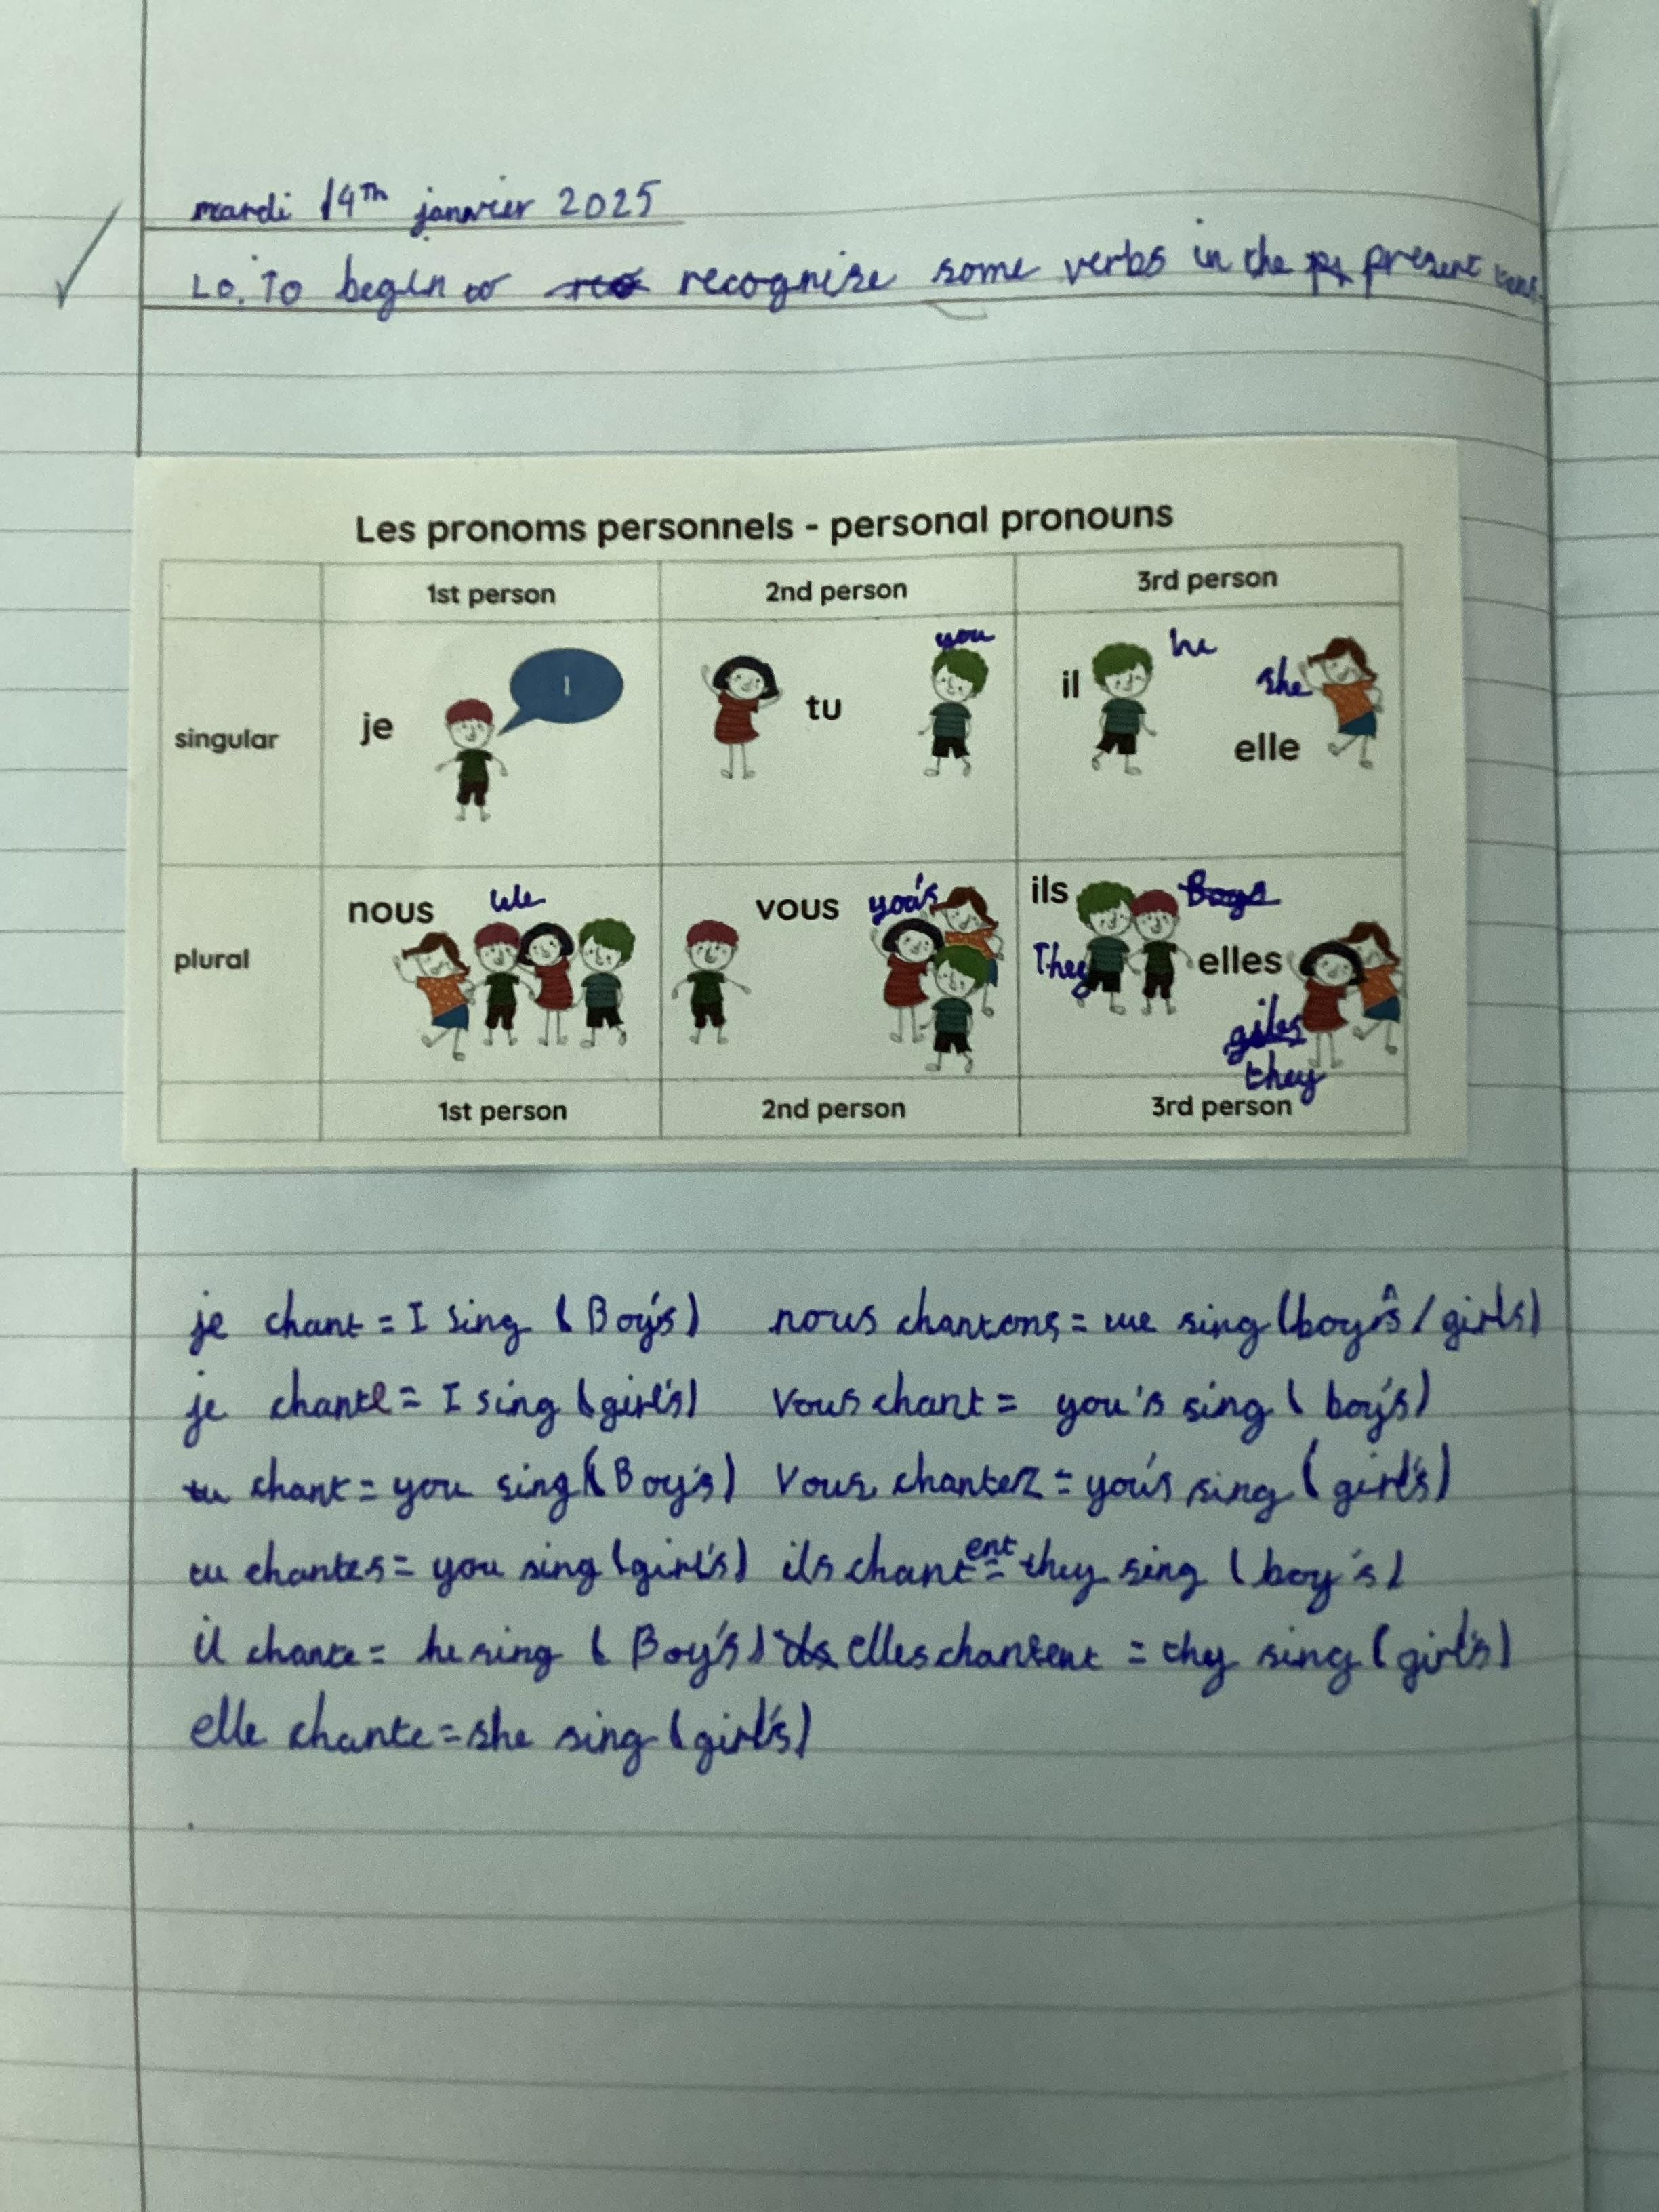 mardi 14th janvier 2025
LO: To begin to recognise some verbs in the present
Les pronoms personnels - personal pronouns
1st person 2nd person 3rd person
singular je I tu you il he she elle
plural nous we vous you's ils Boys They elles they
1st person 2nd person 3rd person
je chant = I sing (Boy's) nous chantons = we sing (boy's / girls)
je chante = I sing (girl's) Vous chant = you's sing (boy's)
tu chant = you sing (Boy's) Vous chantez = you's sing (girl's)
tu chantes = you sing (girl's) ils chantent = they sing (boy's)
il chante = he sing (Boy's) elles chantent = thy sing (girl's)
elle chante = she sing (girl's)